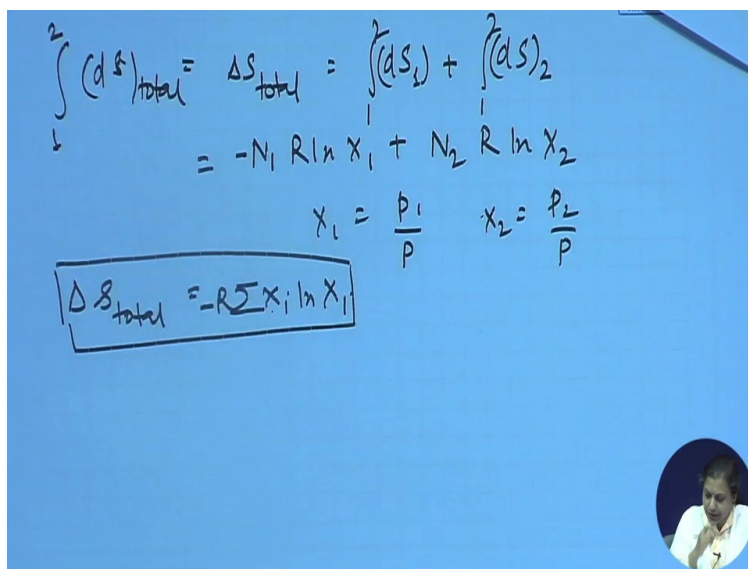 ∫₁² (dS)total = ΔS total = ∫₁² (dS₁) + ∫₁² (dS)₂
= -N₁ R ln x₁ + N₂ R ln x₂
x₁ = p₁/P x₂ = p₂/P
ΔS total = -RΣ xᵢ ln xᵢ